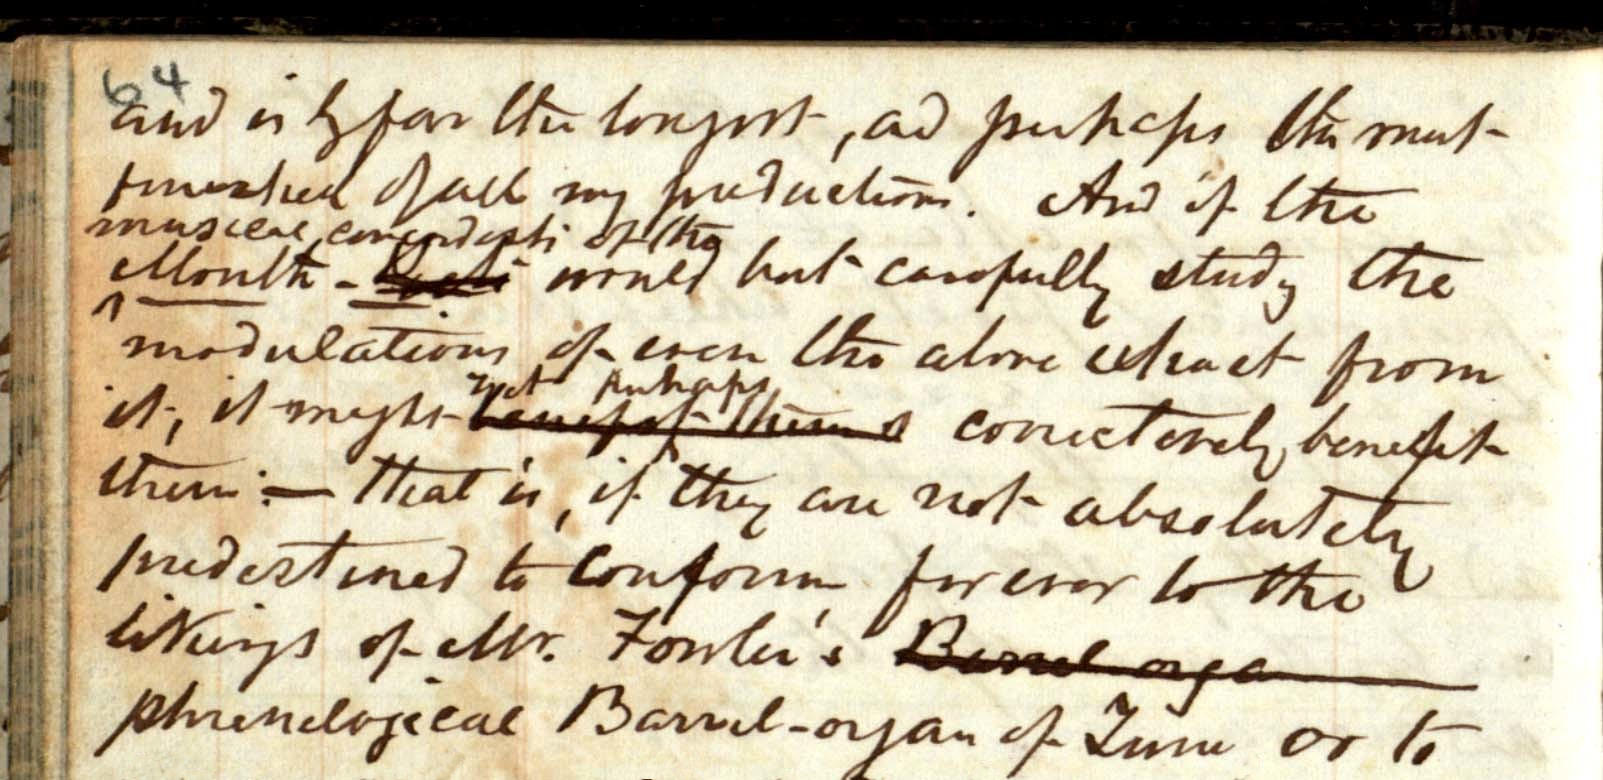 64
and is by far the longest, and perhaps the most
finished of all my productions. And if the
musical of the
Month - would but carefully study the
modulations of even the above extract from
not perhaps
it, it might benefit them correctively benefit
them: — that is, if they are not absolutely
predestined to conform forever to the
likings of Mr. Fowler's Barrel-orga
phrenological Barrel-organ of Time or to